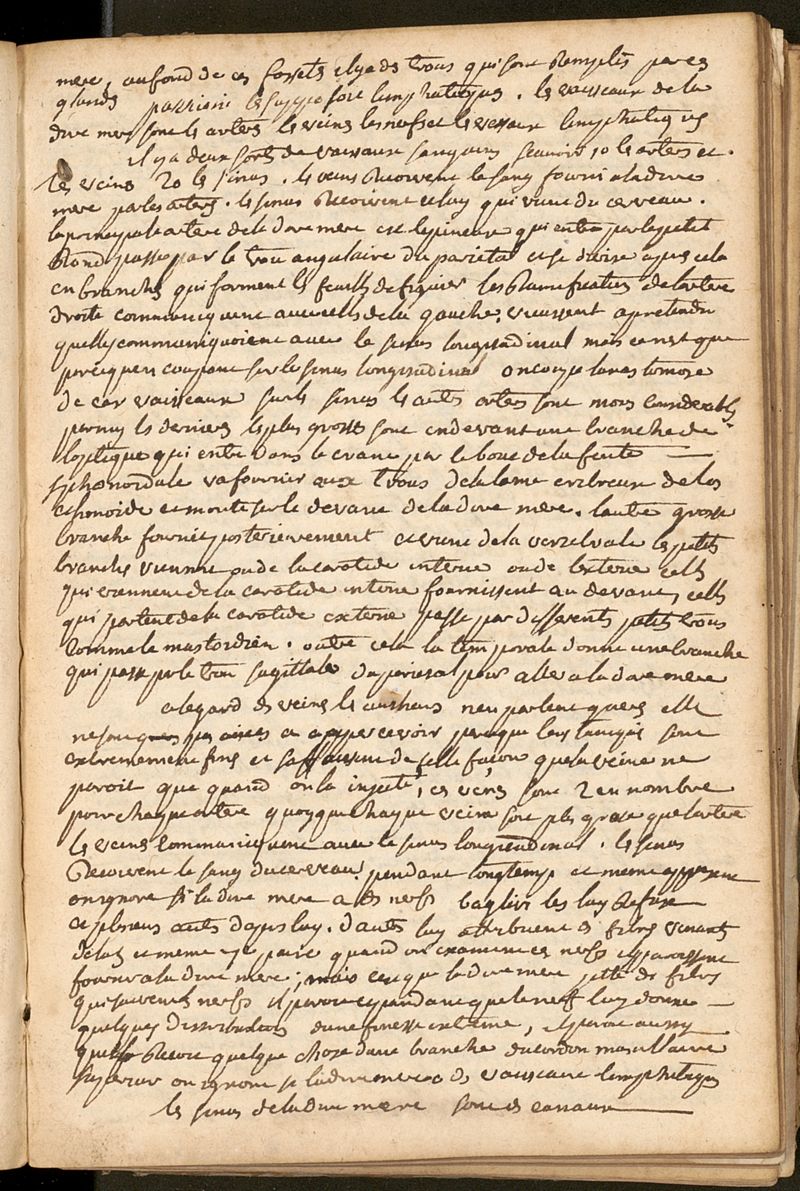 mere, au fond de ces fossets il y a des trous qui sont remplis par ces
glands les suppose fort limphatiques. les vaisseaux de la
dure mere sont les arteres les veines les nerfs et les vesseaux limphatiques
il y a deux sorts de vaisseaux sanguins scavoir 1o les arteres et
les veines 2o les sinus. les veines recoivent le sang fourni a la dure
mere par les arteres. les sinus recoivent celuy qui vient du cerveau.
la principale artere de la dure mere est l'epineuse qui entre par le petit
rond passe par le trou angulaire du parietal et se divise apres cela
en branches qui forment les feuilles de figuier les ramifications de l'artere
droite communiquent avec celles de la gauche, vieussent a pretendu
quelles communiquoient avec le sinus longitudinal mais ce n'est que
parcequen coupant sur le sinus longitudinal on coupe lanastomose
de ces vaisseaux sur le sinus les autres arteres sont moins considerables
parmy les dernieres les plus grosses sont en devant une branche de
loptique qui entre dans le crane par le bout de la fente
sphenoidale va fournir aux trous de la lame cribreuse de los
etmoide et monte sur le devant de la dure mere. lautre grosse
branche fournie posterieurement et vient de la vertebrale les petites
branches viennent ou de la carotide interne ou de lexterne celles
qui viennent de la carotide interne fournissent au devant, celles
qui partent de la carotide externe passe par differents petits trous
comme le mastoidien. outre cela la temporale donne une branche
qui passe par le trou sagittale du parietal pour aller a la dure mere
a legard des veines les autheurs n'en parlent gueres elle
ne sont pas aisées a appercevoir parceque leurs tuniques sont
extremement fins et saffaissent de telle façon que la veine ne
paroit que quand on la injecté, ces veines sont 2 en nombre
pour chaque artere quoyque chaque veine soit plus grosse que lartere
les veines communiquent avec le sinus longitudinal. les sinus
recoivent le sang du cerveau. pendant longtemps et meme apresent
on ignore si la dure mere a des nerfs baglivi les luy refuse
et plusieurs autres depuis luy. dautres luy attribuent des filets venants
de la 5 et meme 7e paire quand on examine ces nerfs ils paroissent
fournir a la dure mere; mais ceque la dure mere jette des filets
qui suivent les nerfs il paroit cependant que le nerf luy donne
quelques distributions dune finesse extreme, il paroit aussy
quelle recoit quelque chose dune branche du cordon maxillaire
superieur on ignore si la dure mere a des vaisseaux limphatiques
les sinus de la dure mere sont des canaux